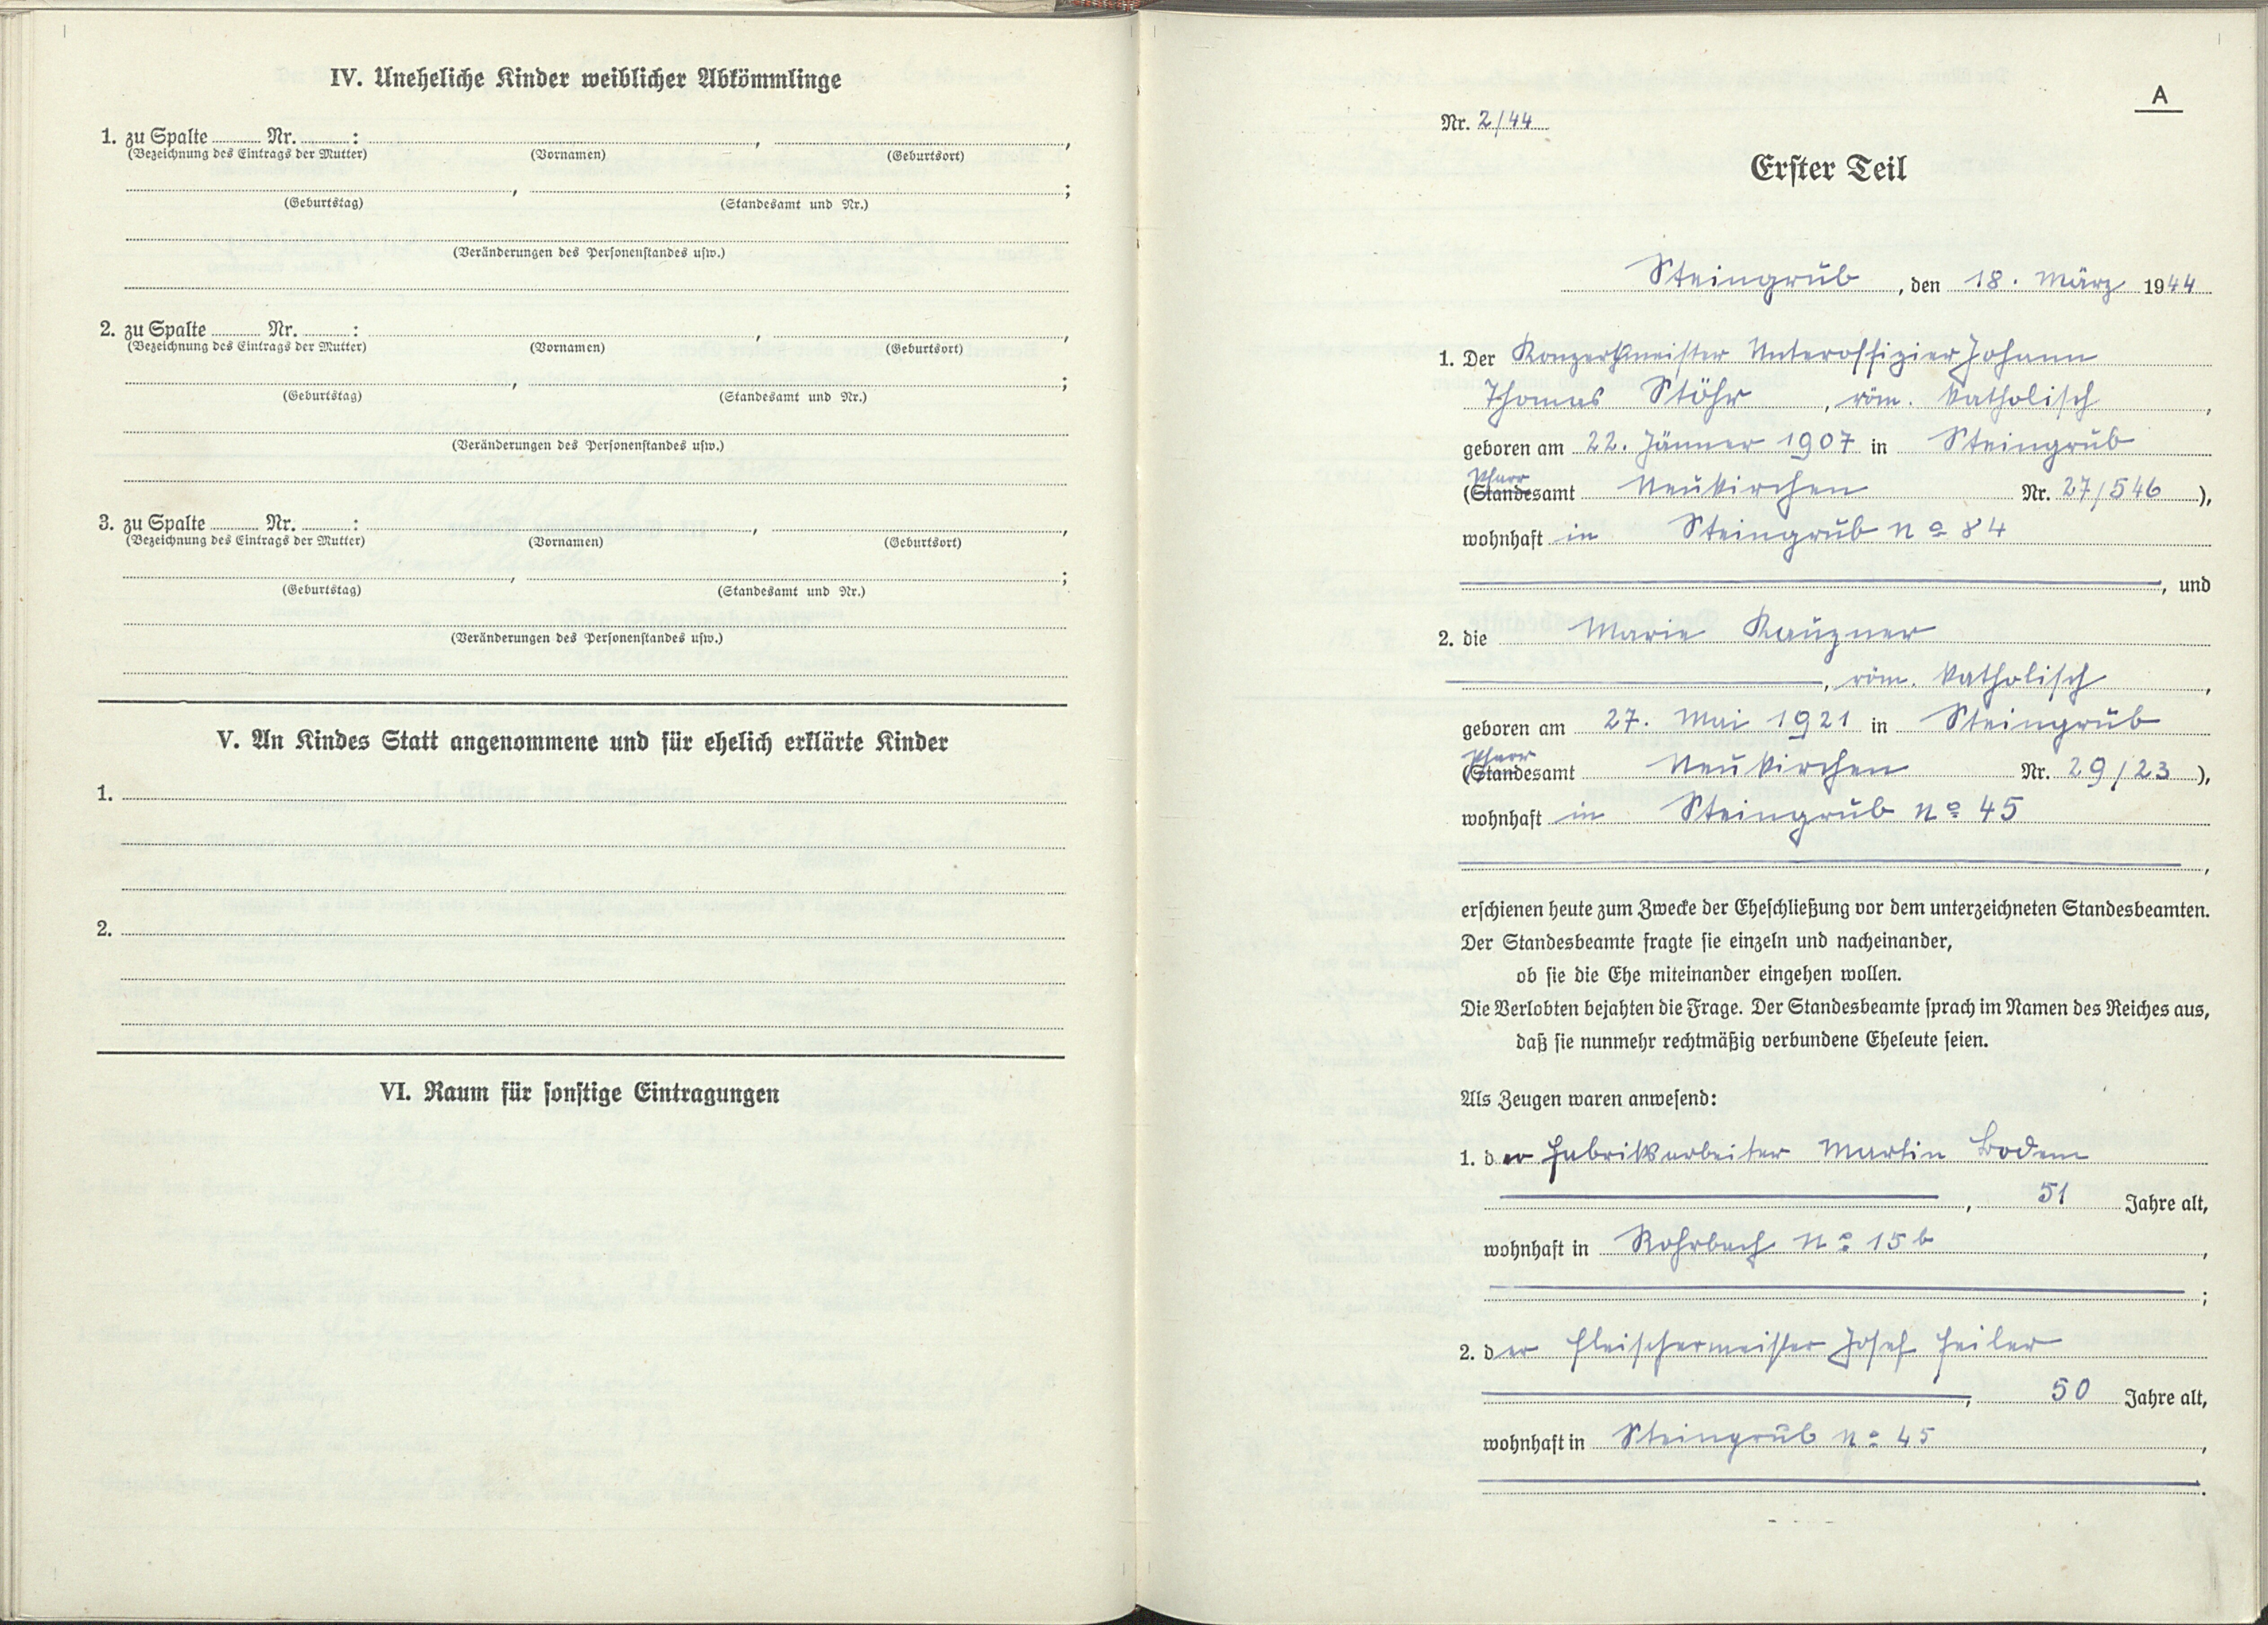 IV. Uneheliche Kinder weiblicher Abkömmlinge
1. zu Spalte ........ Nr. ........: ........, ........,
(Bezeichnung des Eintrags der Mutter) (Vornamen) (Geburtsort)
........, ........;
(Geburtstag) (Standesamt und Nr.)
(Veränderungen des Personenstandes usw.)
2. zu Spalte ........ Nr. ........: ........, ........,
(Bezeichnung des Eintrags der Mutter) (Vornamen) (Geburtsort)
........, ........;
(Geburtstag) (Standesamt und Nr.)
(Veränderungen des Personenstandes usw.)
3. zu Spalte ........ Nr. ........: ........, ........,
(Bezeichnung des Eintrags der Mutter) (Vornamen) (Geburtsort)
........, ........;
(Geburtstag) (Standesamt und Nr.)
(Veränderungen des Personenstandes usw.)
V. An Kindes Statt angenommene und für ehelich erklärte Kinder
1.
2.
VI. Raum für sonstige Eintragungen
A
Nr. 2/44
Erster Teil
Steingrub, den 18. März 1944
1. Der Konzertmeister Unteroffizier Johann
Thomas Stöhr, röm. katholisch,
geboren am 22. Jänner 1907 in Steingrub
Pfarr
(Standesamt Neukirchen Nr. 27/546),
wohnhaft in Steingrub No 84
, und
2. die Marie Kauzner
, röm. katholisch,
geboren am 27. Mai 1921 in Steingrub
Pfarr
(Standesamt Neukirchen Nr. 29/23),
wohnhaft in Steingrub No 45
,
erschienen heute zum Zwecke der Eheschließung vor dem unterzeichneten Standesbeamten.
Der Standesbeamte fragte sie einzeln und nacheinander,
ob sie die Ehe miteinander eingehen wollen.
Die Verlobten bejahten die Frage. Der Standesbeamte sprach im Namen des Reiches aus,
daß sie nunmehr rechtmäßig verbundene Eheleute seien.
Als Zeugen waren anwesend:
1. der Fabriksarbeiter Martin Bodem
, 51 Jahre alt,
wohnhaft in Rohrbach No 15b,
;
2. der Fleischermeister Josef Feiler
, 50 Jahre alt,
wohnhaft in Steingrub No 45,
.